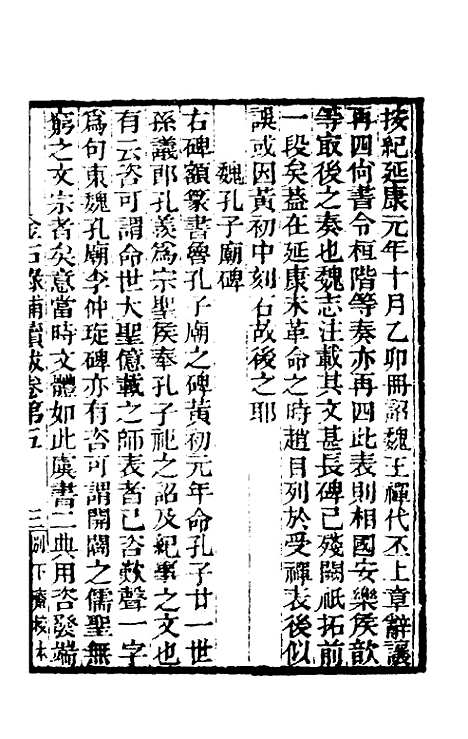 按紀延康元年十月乙卯冊詔魏王禪代丕上章辭讓
再四尙書令桓階等奏亦再四此表則相國安樂侯歆
等取後之奏也魏志注載其文甚長碑已殘闕祇拓前
一段矣蓋在延康末革命之時趙目列於受禪表後似
誤或因黃初中刻石故後之耶
魏孔子廟碑
右碑額篆書魯孔子廟之碑黃初元年命孔子廿一世
孫議郎孔羨為宗聖侯奉孔子祀之詔及紀事之文也
有云咨可謂命世大聖億載之師表者已咨歎聲一字
為句東魏孔廟李仲琁碑亦有咨可謂開闢之儒聖無
窮之文宗者矣意當時文體如此虞書二典用咨發端
金石錄補續跋卷第五 三 別下齋校本